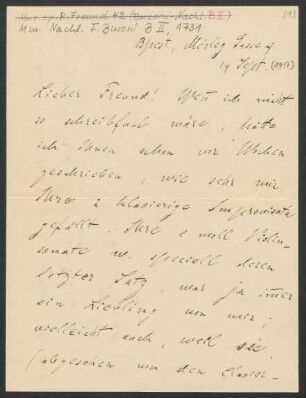 Mus. ep. R. Freund 42 (Busoni-Nachl. B II) (1)
Mus. Nachl. F. Busoni B II, 1731
Bpest,
14 Sept. (1917)
Lieber Freund! Wenn ich nicht
so schreibfaul wäre, hätte
ich Ihnen schon vor Wochen
geschrieben, wie sehr mir
Ihre 2 klavierige Improvisation
gefällt. Ihre e moll Violin-
sonate u. speciell deren
letzter Satz, war ja immer
ein Liebling von mir;
vielleicht auch, weil sie,
(abgesehen von den Clavier-